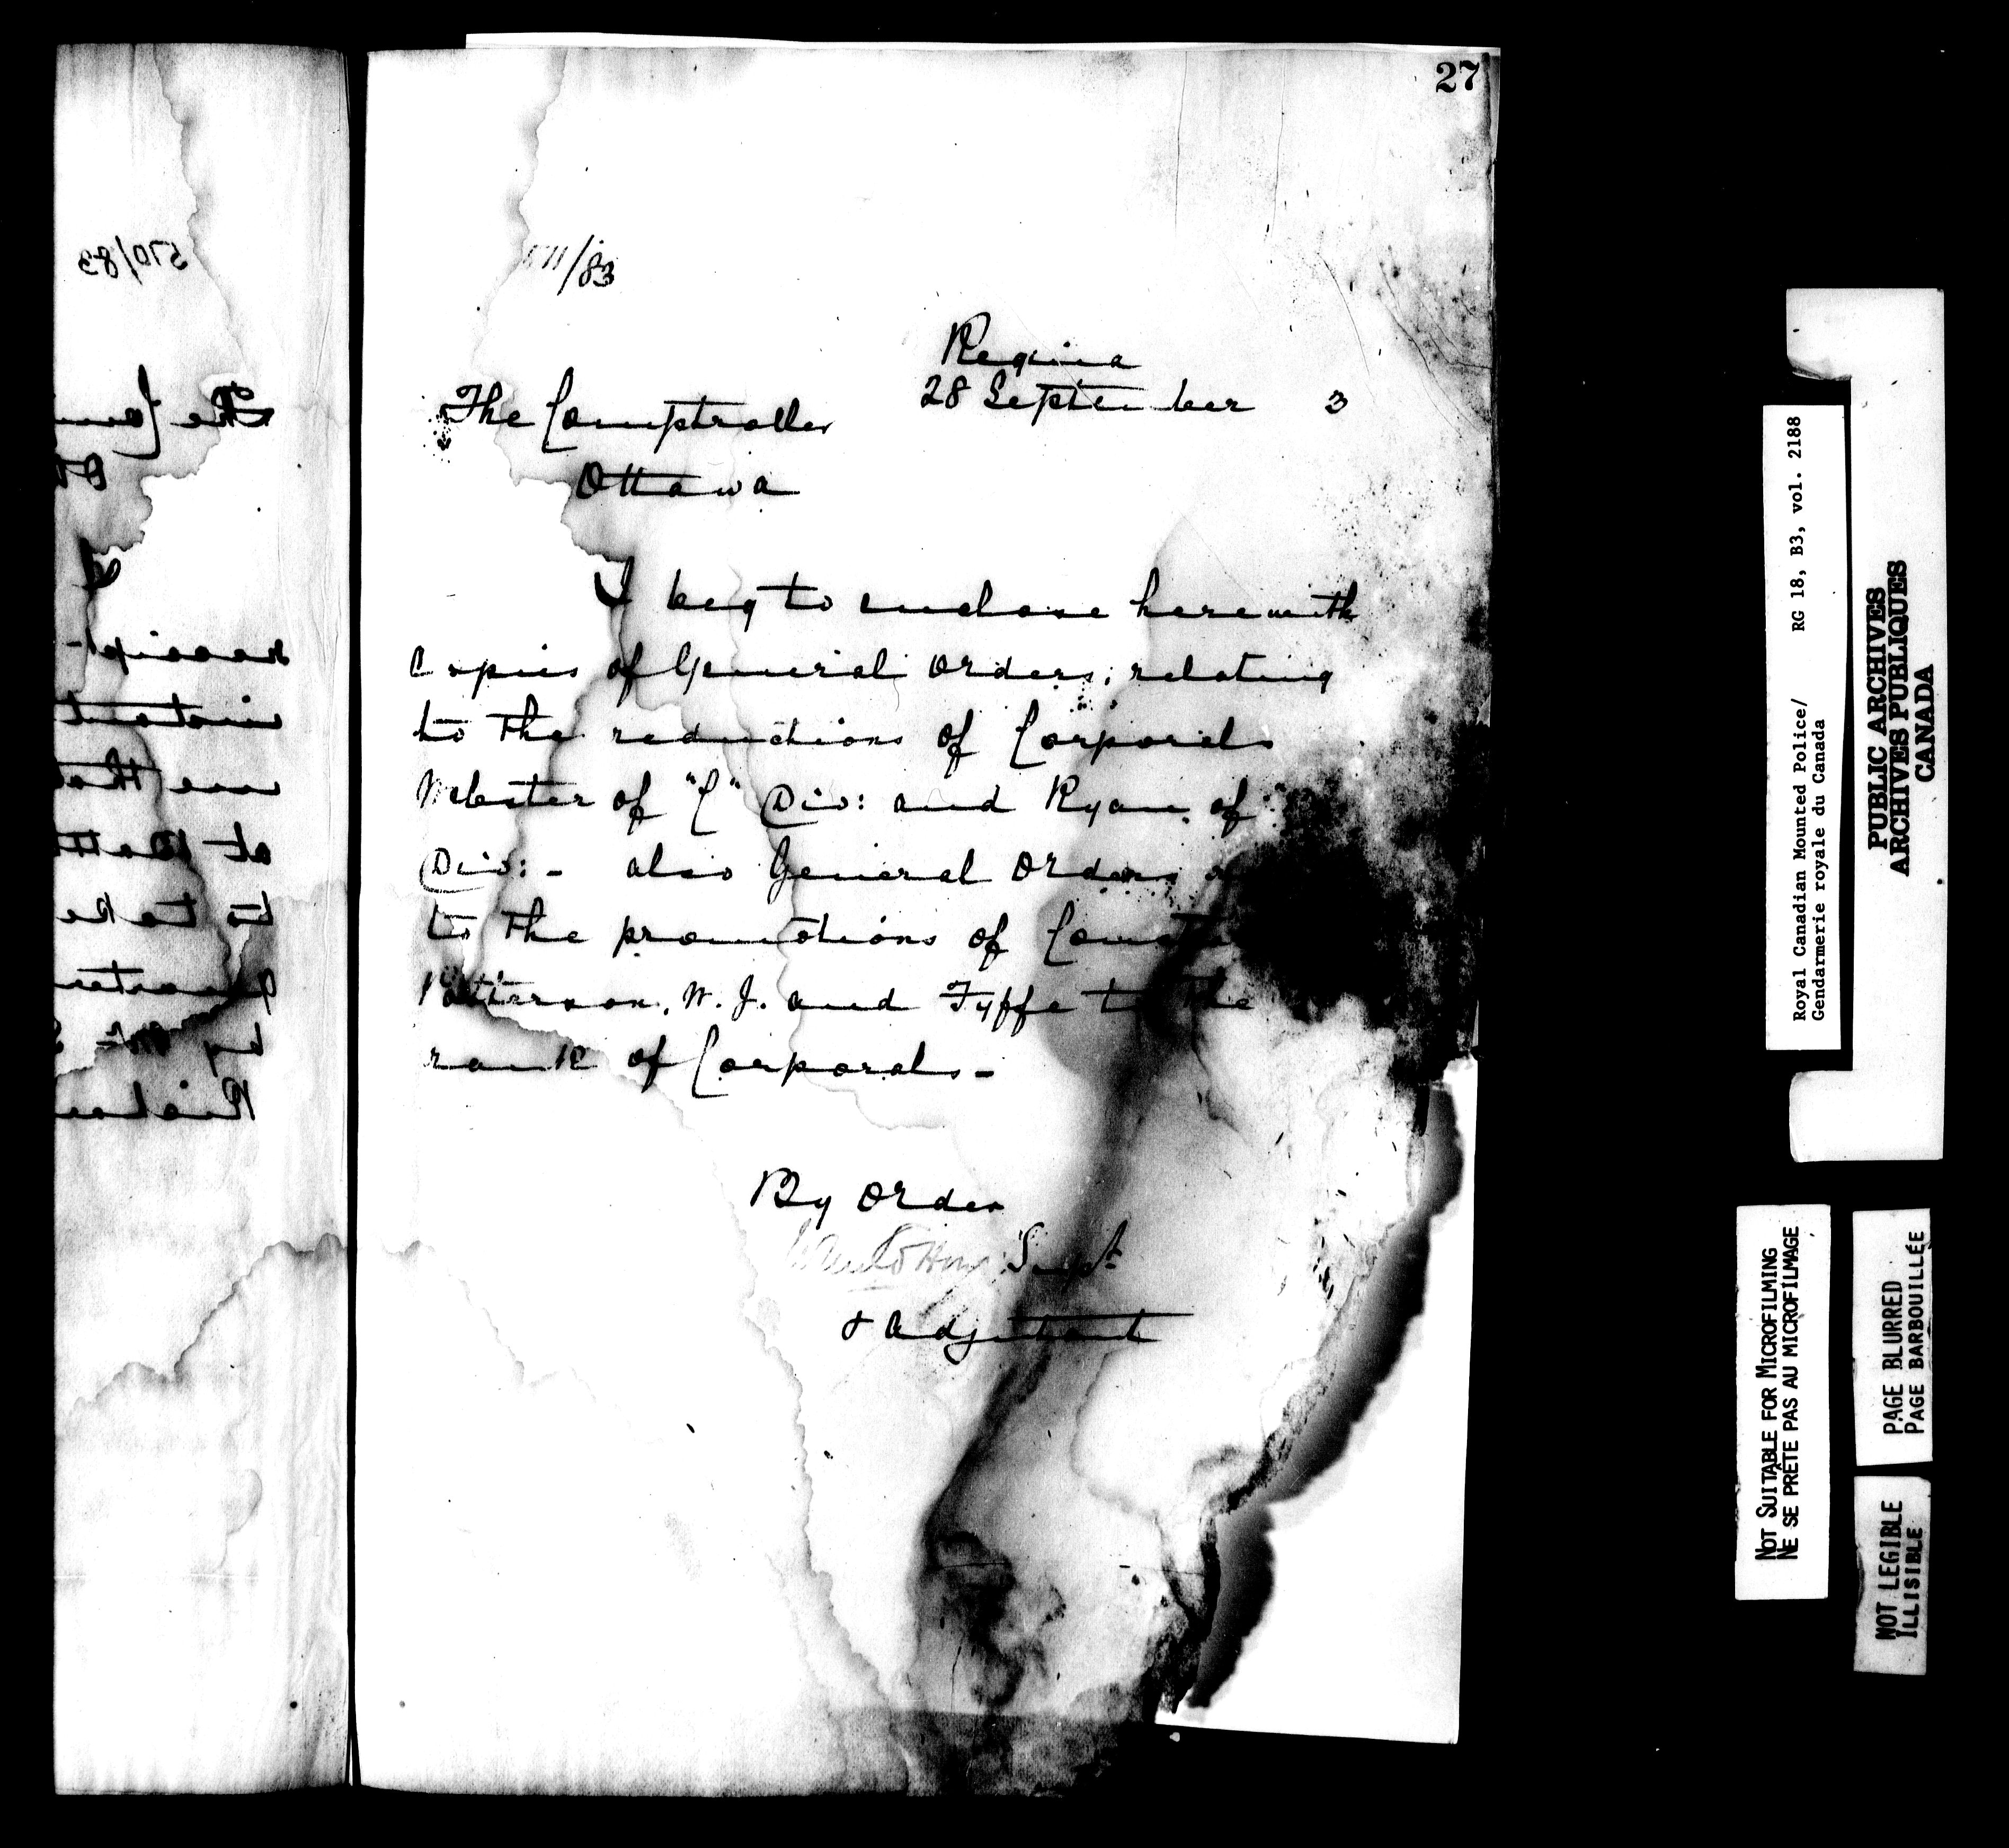 27
/83
Regina
28 September 3
The Comptroller
Ottawa
I beg to enclose herewith
copies of General Orders, relating
to the reductions of Corporals
Webster of "C" Div: and Ryan of
Div:- also General Orders
to the promotions of
Patterson, W. J. and Fyffe to the
rank of Corporals-
By Order
Supt
& Adjutant
570/83
The
receipt
instant
me that
at
to take
by Mr
Royal Canadian Mounted Police/ RG 18, B3, vol. 2188
Gendarmerie royale du Canada
PUBLIC ARCHIVES
ARCHIVES PUBLIQUES
CANADA
NOT SUITABLE FOR MICROFILMING
NE SE PRÊTE PAS AU MICROFILMAGE
PAGE BLURRED
PAGE BARBOUILLÉE
NOT LEGIBLE
ILLISIBLE